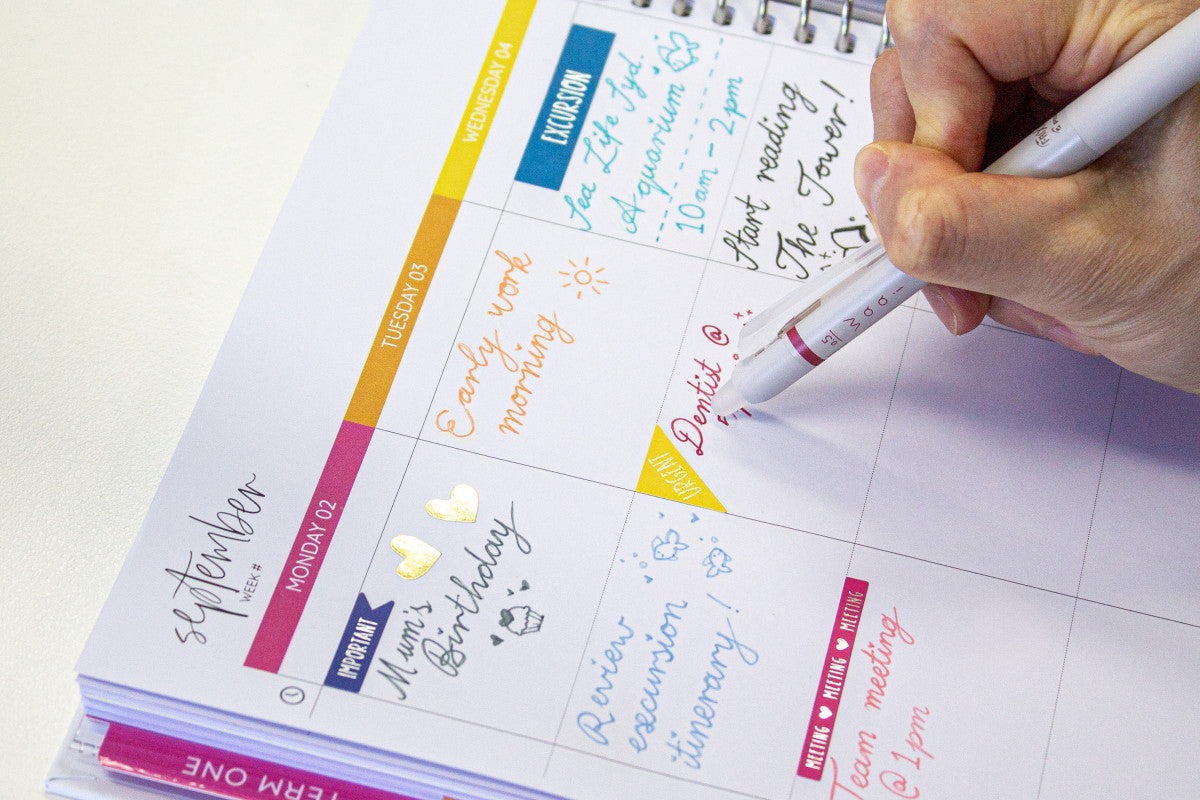 september
WEEK #
MONDAY 02
IMPORTANT
Mum's
Birthday
Review
excursion
itinerary!
MEETING MEETING MEETING
Team meeting
@ 1pm
TUESDAY 03
Early work
morning
URGENT
Dentist @
WEDNESDAY 04
EXCURSION
Sea Life Syd.
Aquarium
10am - 2pm
Start reading
The Tower!
TERM ONE